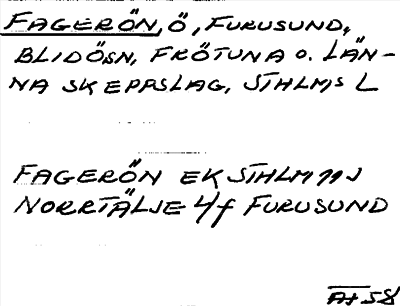 FAGERÖN, Ö, FURUSUND,
BLIDÖSN, FRÖTUNA O. LÄN-
NA SKEPPSLAG, STHLMS L
FAGERÖN EK STHLM 11J
NORRTÄLJE 4f FURUSUND